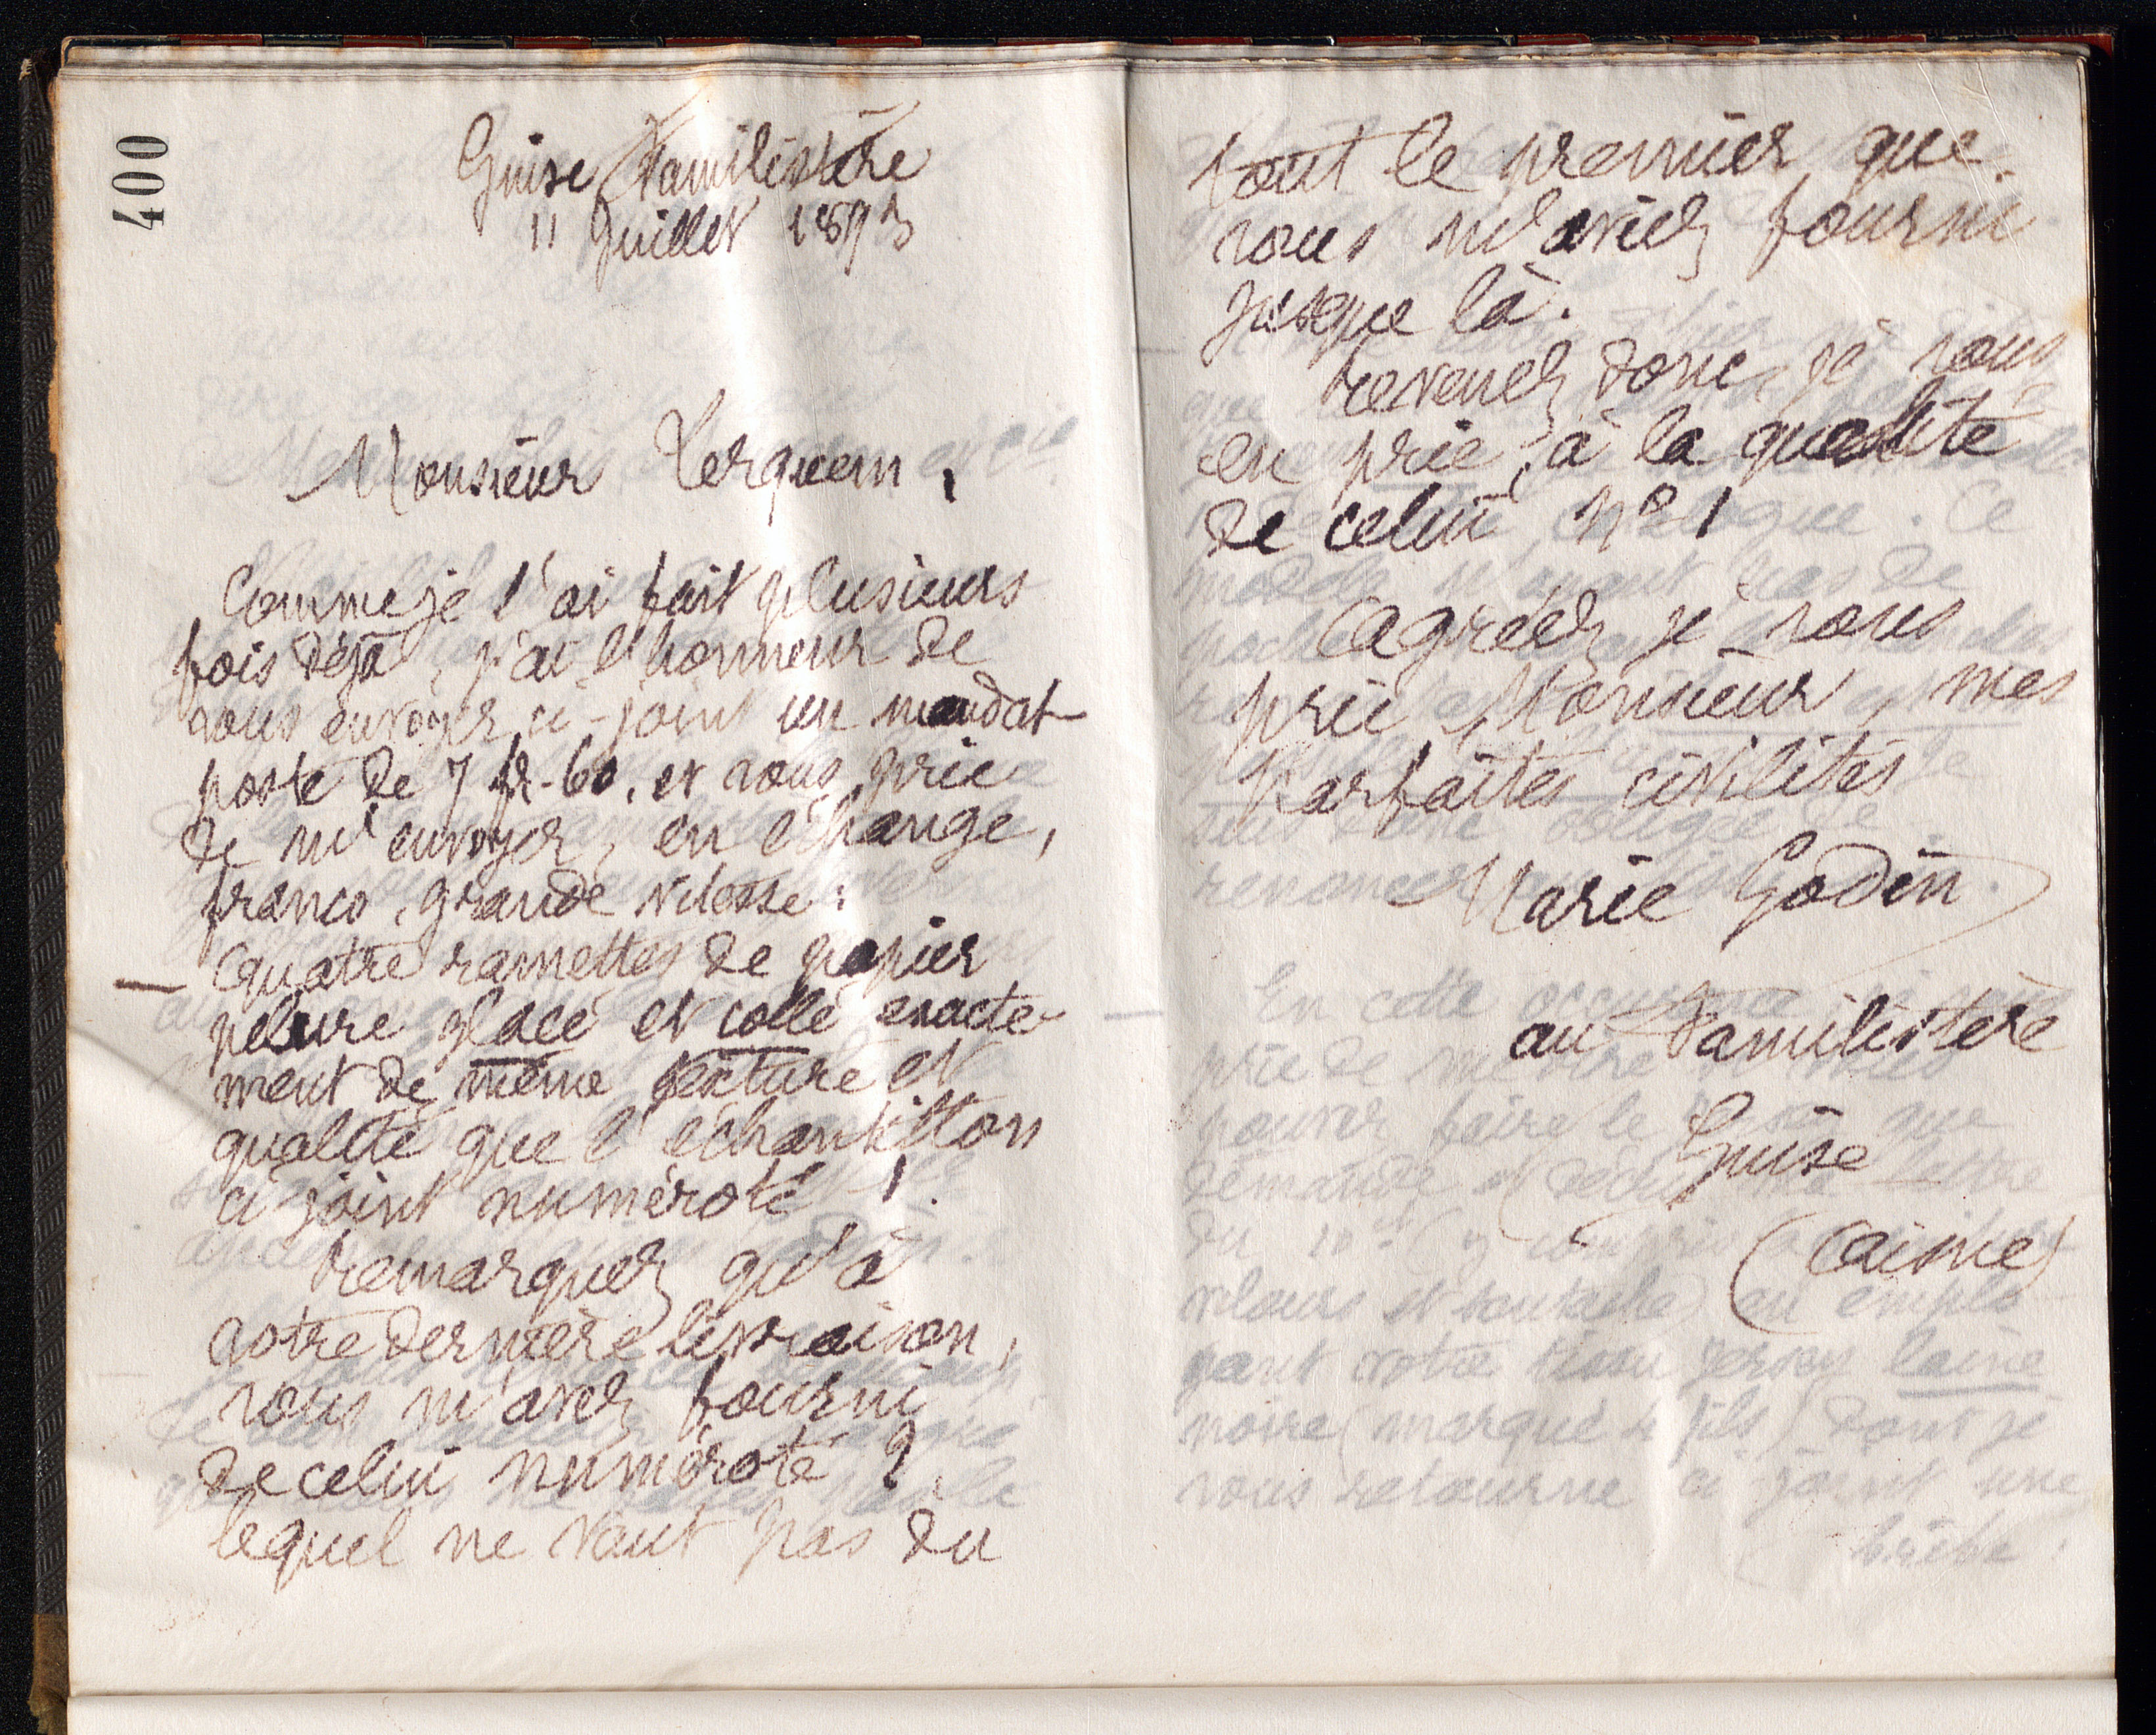 400
Guise Familistère
11 Juillet 1893
Monsieur Terquem,
Comme je l'ai fait plusieurs
fois déjà, j'ai l'honneur de
vous envoyer ci-joint un mandat
poste de 7 fr. 60, et vous prie
de m'envoyer, en échange,
franco, grande vitesse :
— Quatre ramettes de papier
pelure glacé et collé exacte
ment de même texture et
qualité que l'échantillon
ci joint numéroté 1.
Remarquez qu'à
votre dernière livraison,
vous m'avez fourni
de celui numéroté 2,
lequel ne vaut pas du
tout le premier que
vous m'aviez fourni
jusque là.
Revenez donc, je vous
en prie, à la qualité
de celui N° 1
Agréez je vous
prie, Monsieur, mes
parfaites civilités
Marie Godin
au Familistère
Guise
(Aisne)